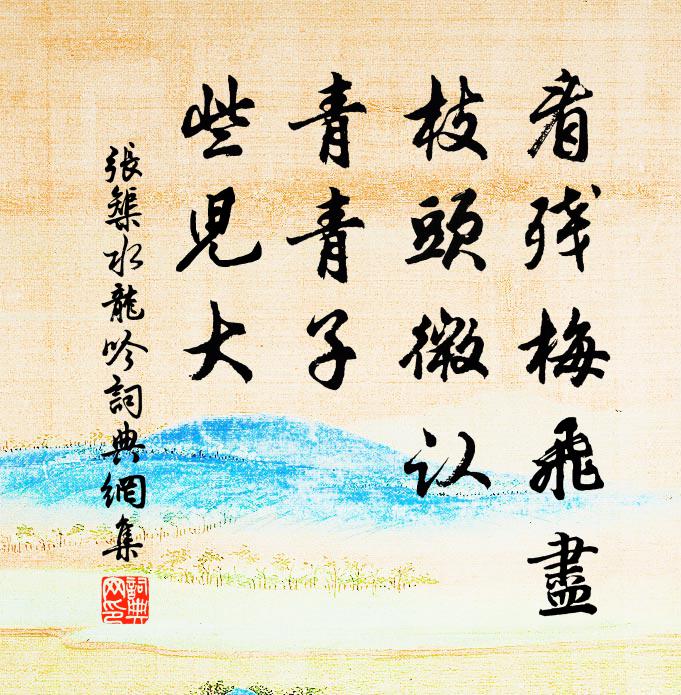 看残梅飛盡
枝頭微认
青青子
些児大
張榘水龍吟詞典網集
詞典網印